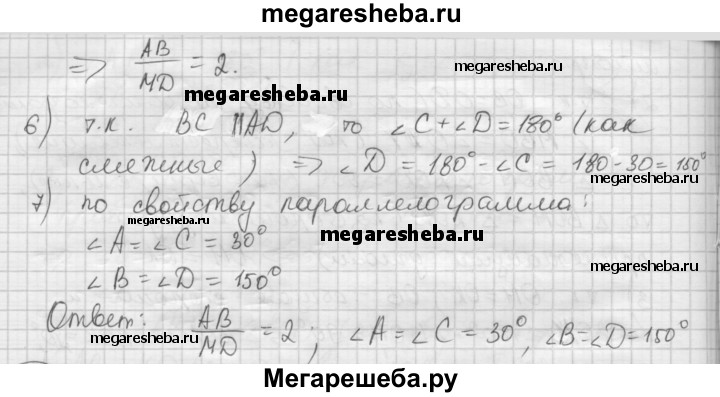 megaresheba.ru
=> AB/MD = 2.
megaresheba.ru
megaresheba.ru
6) т.к. BC || AD, то ∠C + ∠D = 180° (как
смежные) => ∠D = 180° - ∠C = 180 - 30 = 150°
megaresheba.ru
7) по свойству параллелограмма:
megaresheba.ru
∠A = ∠C = 30°
megaresheba.ru
∠B = ∠D = 150°
megaresheba.ru
Ответ: AB/MD = 2; ∠A = ∠C = 30°, ∠B = ∠D = 150°
megaresheba.ru
megaresheba.ru
Мегарешеба.ру